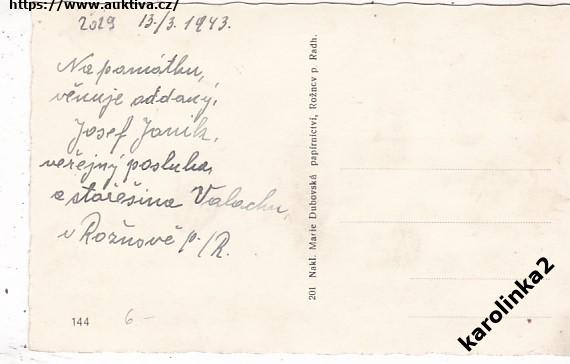 https://www.auktiva.cz/
2029 13./3. 1943.
Na památku,
věnuje oddaný,
Josef Janík,
veřejný posluha,
a stařešina Valachů,
v Rožnově p./R.
201 Nakl. Marie Dubovská papírnictví, Rožnov p. Radh.
144
6 –
karolinka2